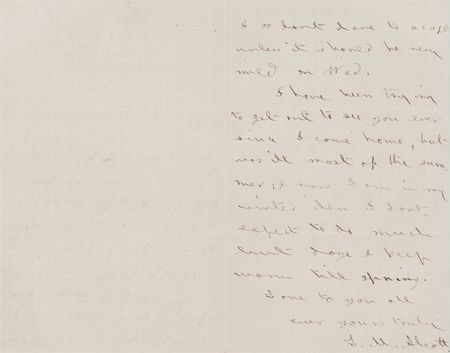 I so dont dare to accept
unless it should be very
mild on Wed.
I have been trying
to get out to see you ever
since I came home, but
was ill most of the sum-
mer, & now I am in my
winter den I dont
expect to do much
but doze & keep
warm till spring.
Love to you all
ever yours truly
L. M. Alcott